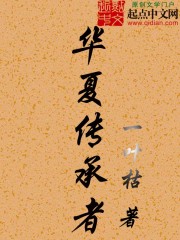 原创文学门户
起点中文网
www.qidian.com
华夏传承者
一叶枯 著